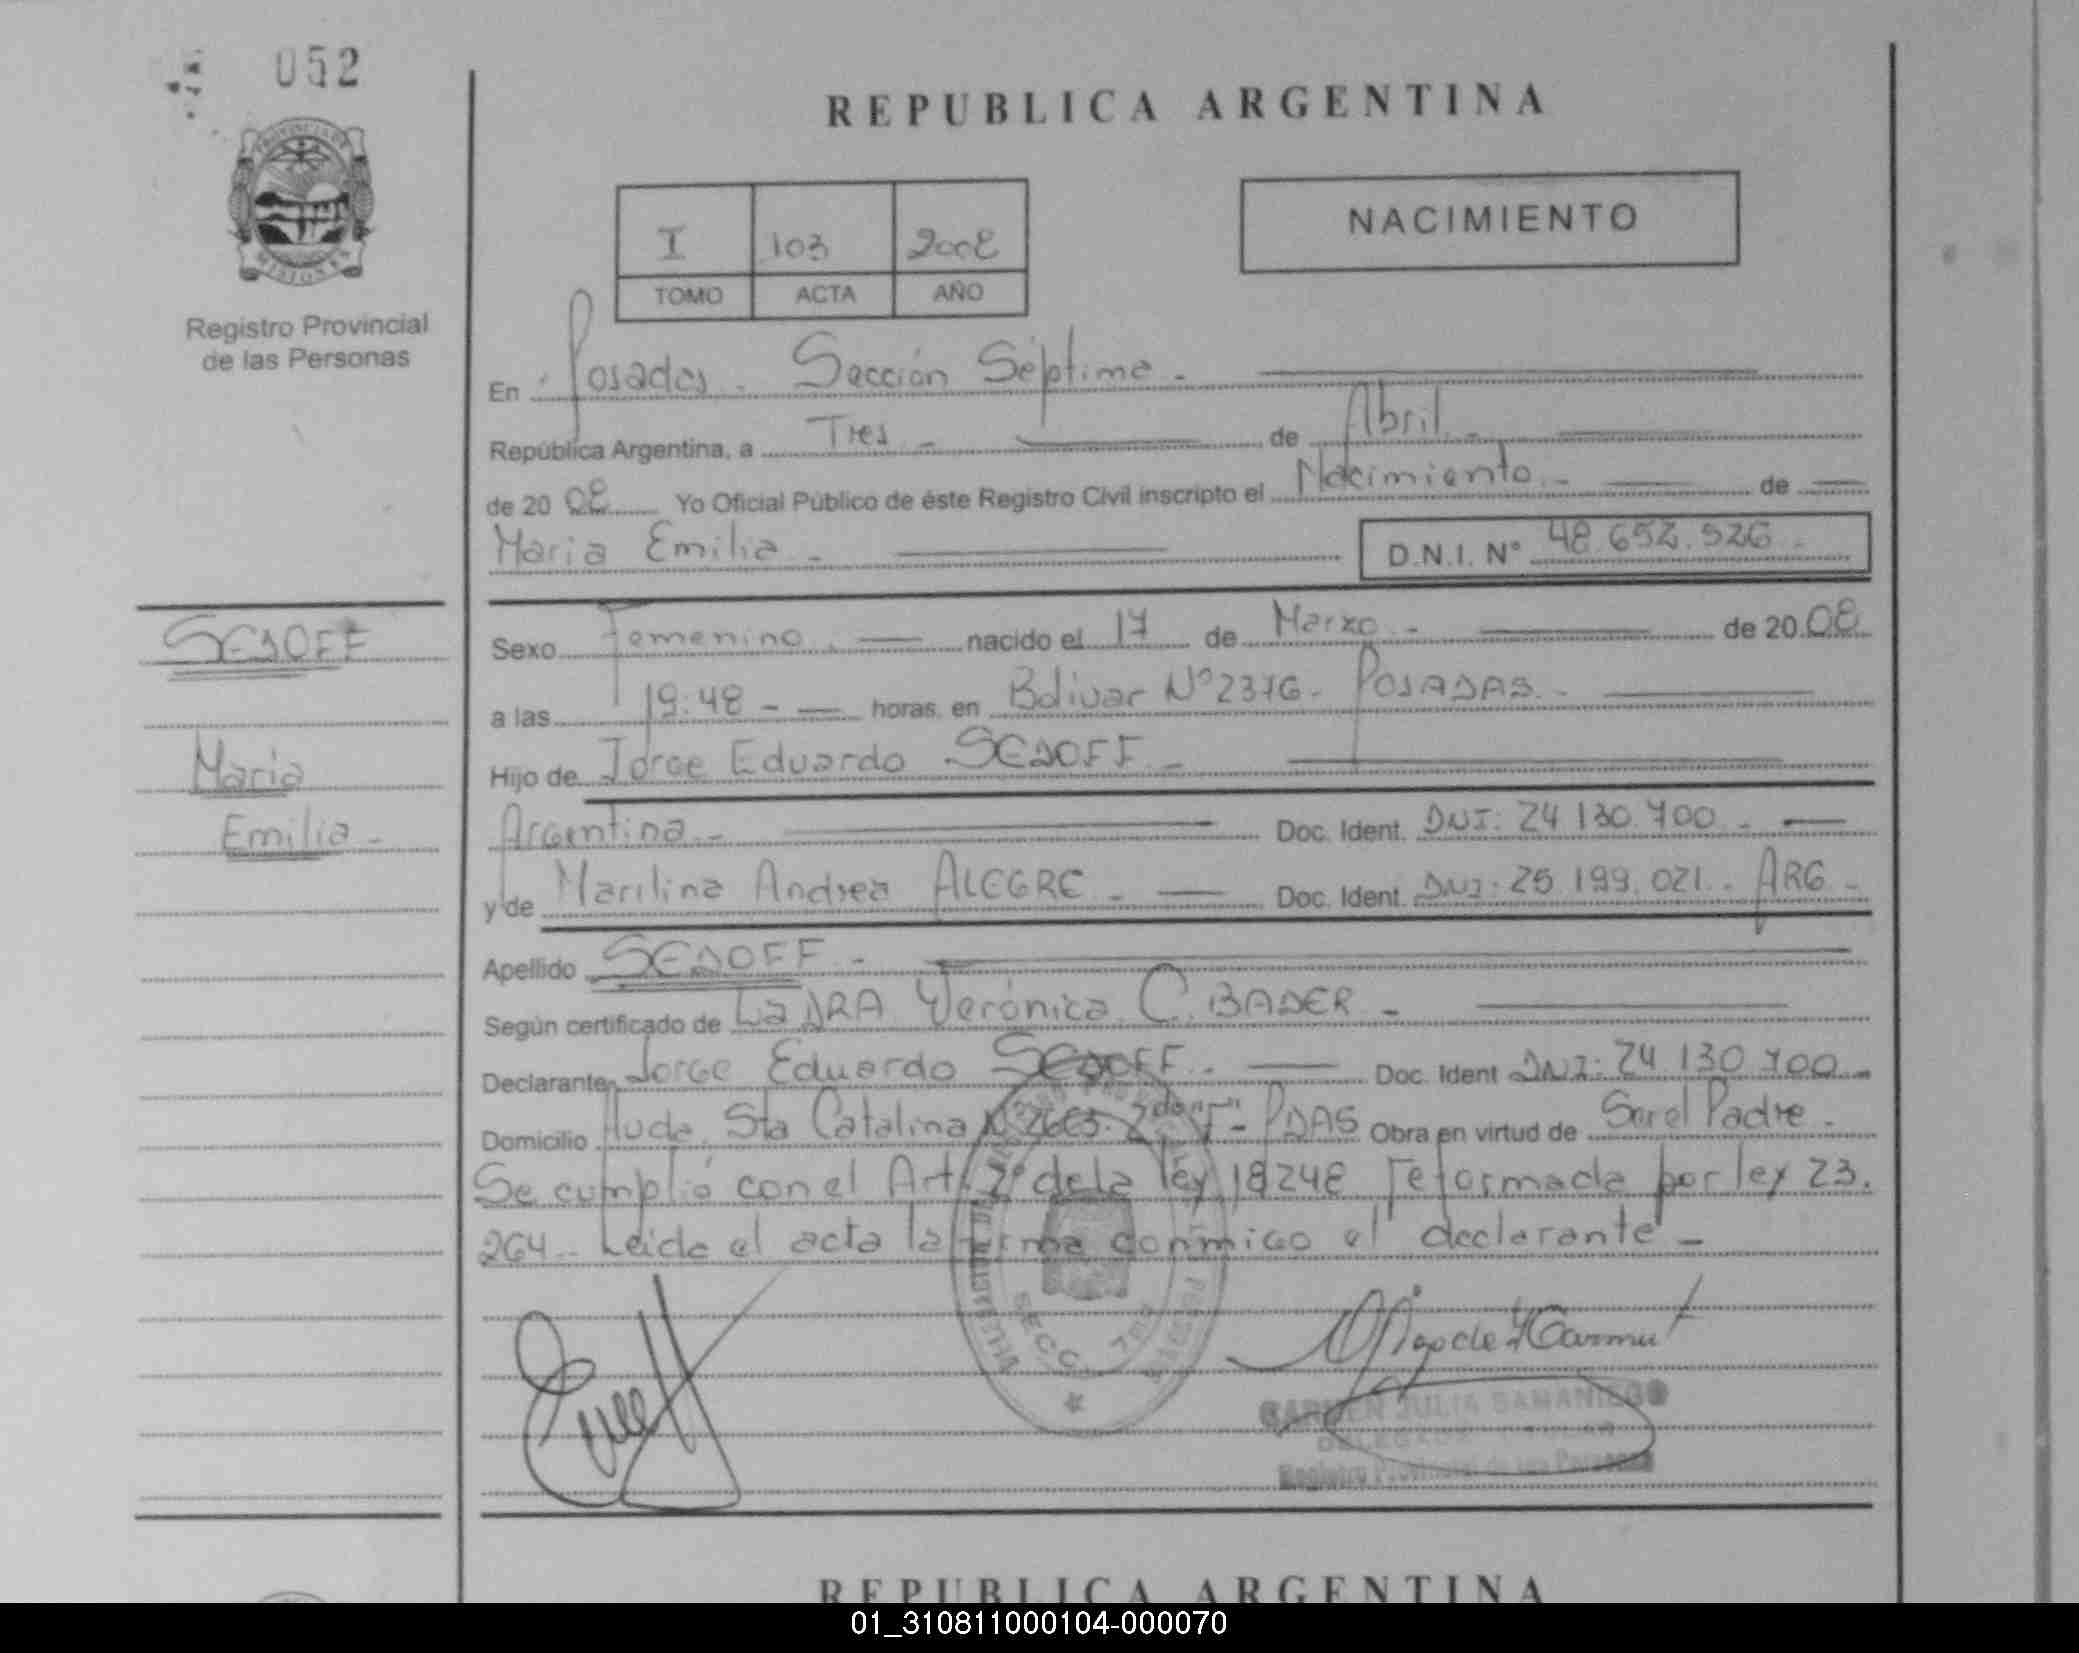 052
PROVINCIA DE
MISIONES
Registro Provincial
de las Personas
REPUBLICA ARGENTINA
I 103 2008
TOMO ACTA AÑO
NACIMIENTO
En Posadas - Sección Séptima -
República Argentina, a Tres - de Abril -
de 20 08 Yo Oficial Público de éste Registro Civil inscripto el Nacimiento - de
Maria Emilia - D.N.I. Nº 48.652.526 -
SEDOFF
Maria
Emilia -
Sexo Femenino - nacido el 17 de Marzo - de 20 08
a las 19:48 - horas, en Bolivar Nº 2376 - POSADAS -
Hijo de Jorge Eduardo SEDOFF -
Argentina - Doc. Ident. DNI: 24.130.700 -
y de Marilina Andrea ALEGRE - Doc. Ident. DNI: 25.199.021 - ARG -
Apellido SEDOFF -
Según certificado de La DRA Verónica C. BADER -
Declarante Jorge Eduardo SEDOFF - Doc. Ident DNI: 24.130.700 -
Domicilio Avda. Sta Catalina Nº 2663 - 2do "F" - PDAS Obra en virtud de Ser el Padre -
Se cumplió con el Art. 2º de la ley 18248 reformada por ley 23.
264 - Leida el acta la firma conmigo el declarante -
SECC. 7ma
CARMEN JULIA SAMANIEGO
DELEGADA TITULAR
Registro Provincial de las Personas
REPUBLICA ARGENTINA
01_310811000104-000070